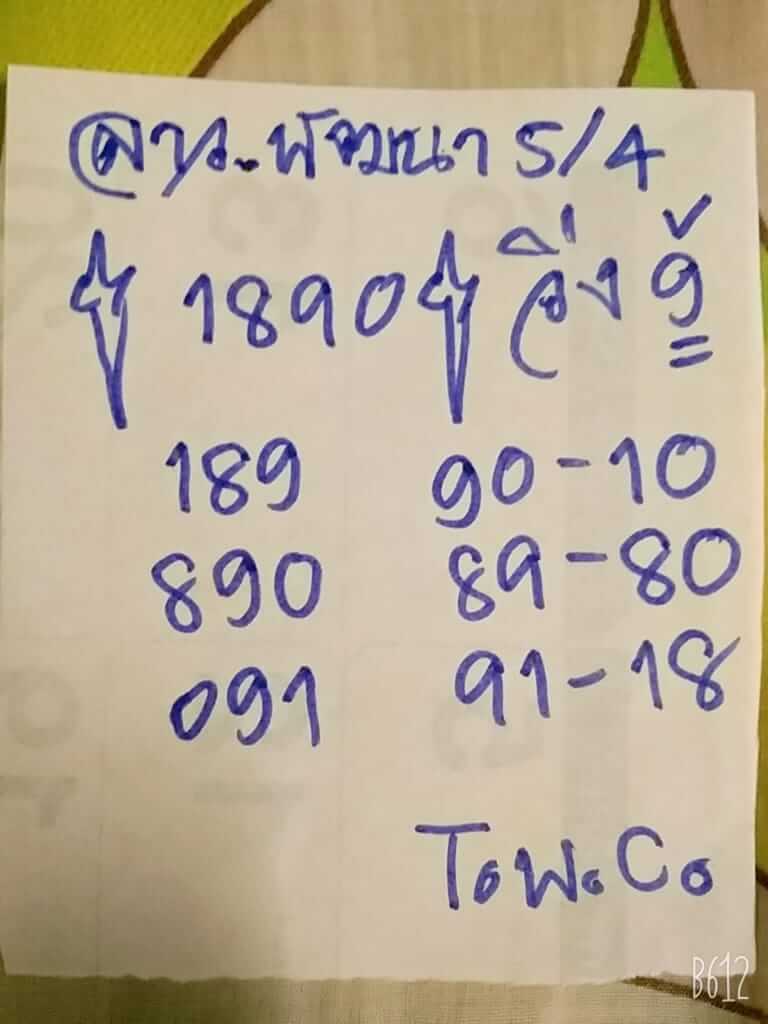 ลาว.พัฒนา 5/4
1890 วิ่ง 9
189 90-10
890 89-80
091 91-18
B612